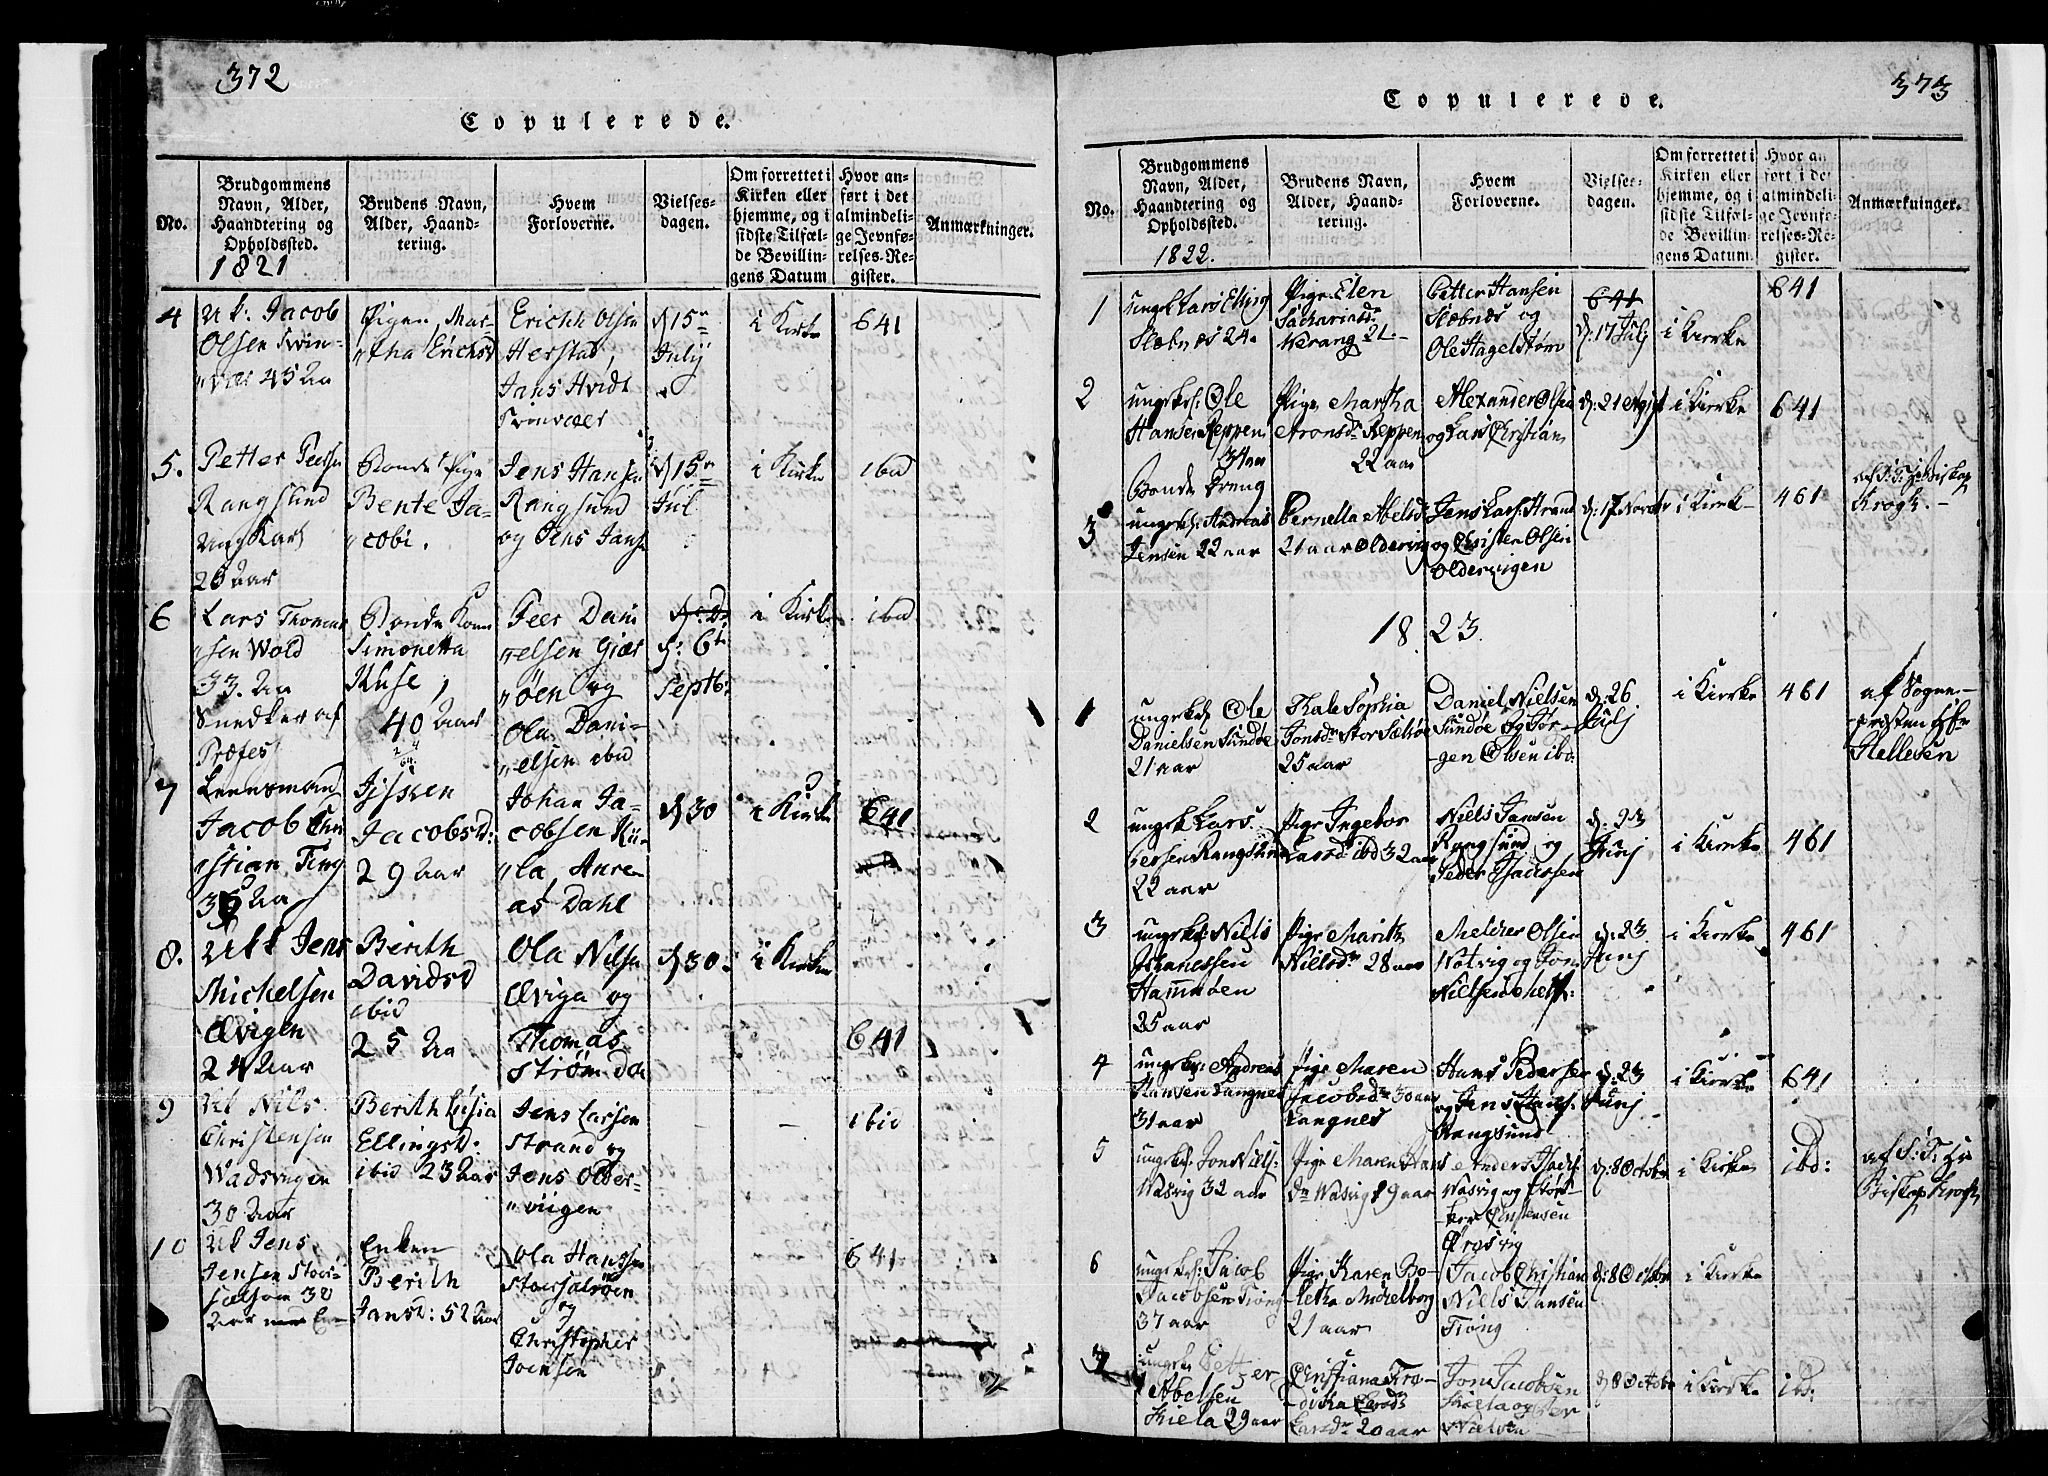 372
Copulerede.
No.
Brudgommens
Navn, Alder,
Haandtering og
Opholdssted.
1821
Brudens Navn,
Alder, Haand-
tering.
Hvem
Forloverne.
Vielses-
dagen.
Om forrettet i
Kirken eller
hjemme, og i
sidste Tilfæl-
de Bevillin-
gens Datum
Hvor an-
ført i det
almindeli-
ge Jevnfø-
relses-Re-
gister.
Anmærkninger.
4
Uk: Jacob
Olsen
45 Aa
Pigen Mar-
tha Erichsd
Erich Olsen
Herstad,
Jans Hvidt
d 15
July
i Kirke
641
5.
Petter Peersn
Rangsund
Ung Kar
26 Aar
Bonde Pige
Bente Ja-
cobi.
Jens Hansen
Rangsund
og Jens Jans
d 15
Jul
i Kirke
ibid
6
Lars Thomas
sen Wold
33. Aa
Snedker af
Profes
Bonde Kone
Simonetta
Kuse,
40 Aar
Peer Dani
elsen Giæs
øen og
Ola Dani-
elsen ibid
d: 6te
Septb:
i Kirke
ibid
7
Lensmand
Jacob Chri
stian Ting
36 Aa
Jacobsd:
29 Aar
Johan Ja-
cobsen Kii-
la, Anre-
as Dahl
d 30
i Kirke
641
8.
Uk Jens
Michelsen
Øvigen
24 Aar
Berith
Davidsd
ibid
25 Aa
Ola Nilsn
Øviga og
Thomas
Strømdal
d 30:
i Kirke
641
9
Uk Nils
Christensen
Wadsvigen
30 Aar
Berith Lusia
Ellingsd:
ibid 23 Aar
Jens Larsen
Strand og
Jens Older-
viigen
-
-
ibid
10
Uk Jens
Jensen Stor-
30
Aar
Enken
Berith
Jansd: 52 Aar
Ola Hansen
og
Christopher
Joensen
641
373
Copulerede.
No.
Brudgommens
Navn, Alder,
Haandtering og
Opholdssted.
1822.
Brudens Navn,
Alder, Haand-
tering.
Hvem
Forloverne.
Vielses-
dagen.
Om forrettet i
Kirken eller
hjemme, og i
sidste Tilfæl-
de Bevillin-
gens Datum.
Hvor an
ført i det
almindeli-
ge Jevnfø-
relses-Re-
gister.
Anmærkninger.
1
ungk Lars Elling
Slæbnes 24.
Pige Elen
Sachariasdr
Werang 21-
Petter Hansen
Slæbnes og
Ole Hagelstøm
641
d: 17 Julj
i Kirke
641
2
ungekr: Ole
Hansen Reppen
34 aar
Pige Martha
Aronsdr Reppen
22 aar
Alexander Olsen
og Lars Christian
d: 21 Agust
i Kirke
641
3
Bonde Dreng
ungekr: Andreas
Jensen 22 aar
Pernella Abelsd
21 aar Oldervig
Jens Lars: Strand
og Christen Olsen
Oldervigen
d: 17 Novbr
i Kirk-
461
af S: T: Hr Biskop
Krogh.-
1823.
1
ungekr Ole
Danielsen Sundøe
21 aar
Thale Sophia
Jonsdr Stor Selsøe
25 aar
Daniel Nielsen
Sundøe og Jør-
gen Olsen ibd.
d: 26
Julj
i Kirke
461
af Sogne-
prosten Hr
Hellesen
2
ungk Lars
Persen Rangsund
22 aar
Pige Ingebor
Larsdr ibd 32 aar
Niels Jansen
Rangsund og
Peder Isacssen
d: 23
Junj
i Kirke
461
3
ungekr: Niels
Johanessen
Hamnøen
25 aar
Pige Marith
Nielsdr 28 aar
Melcher Olsen
Notvig og Jon
Nielsen
d: 23
Junj
i Kirke
461
4
ungekr: Andreas
Hansen Langnes
31 aar
Pige Maren
Jacobsdr 30 aar
Langnes
Hans Pedersen
og Jens Hans:
Rangsund
d: 23
Junj
i Kirke
641
5
ungekr Jon Niels:
Wasvig 32 aar
Pige Maren Hans
dr Wasvig 29 aar
Anders Isachs:
Wasvig og
Christensen
d: 8 Octobr
i Kirke
ibd:
af S: T: Hr
Biskop Krogh
6
ungekr: Jacob
Jacobsen Tiong
37 aar
Pige Karen Bo-
letha Michelborg
21 aar
Jacob Christian
Niels Jansen
Tiong
d: 8 Octobr
i Kirke
7
ungekr Petter
Abelsen
Kiela 29 aar
Christiana Fre-
dricka
Larsdr 20 aar
Jon Jacobsen
Kiela og Peter
Nielsen
d 8 Octobr
i Kirke
ibd: